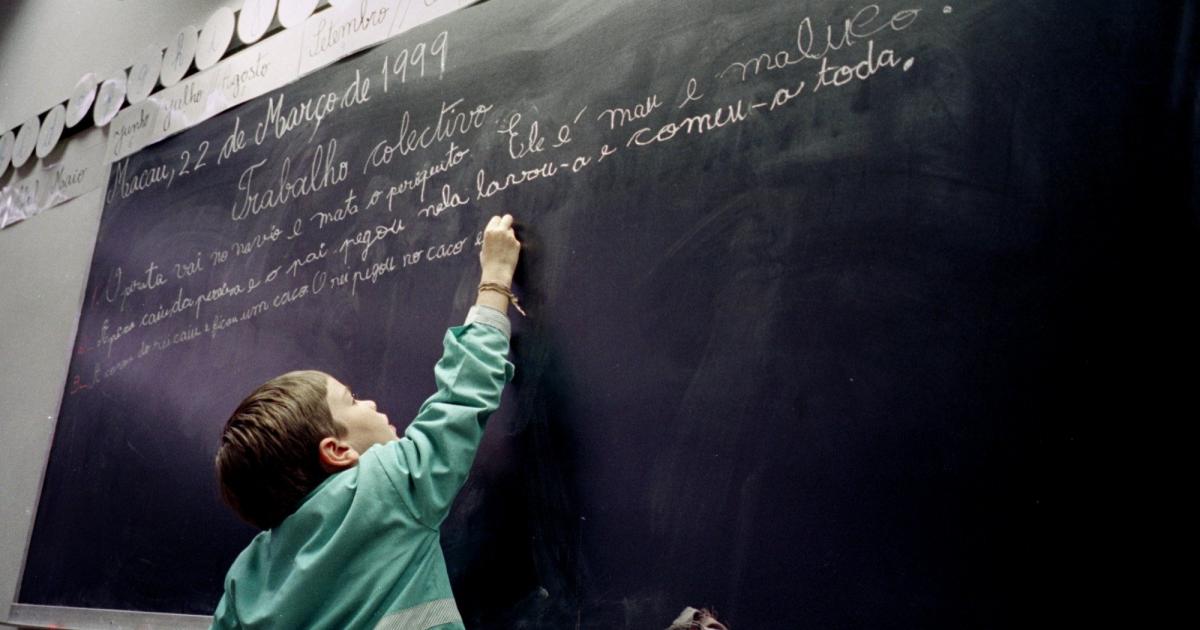 g h i
Junho // Julho // Agosto // Setembro //
Maio
Macau, 22 de Março de 1999
Trabalho colectivo
1_ O pirata vai no navio e mata o periquito. Ele é mau e maluco.
2_ A pera caiu da pereira e o pai pegou nela lavou-a e comeu-a toda.
3_ A coroa do rei caiu e ficou um caco. O rei pegou no caco e